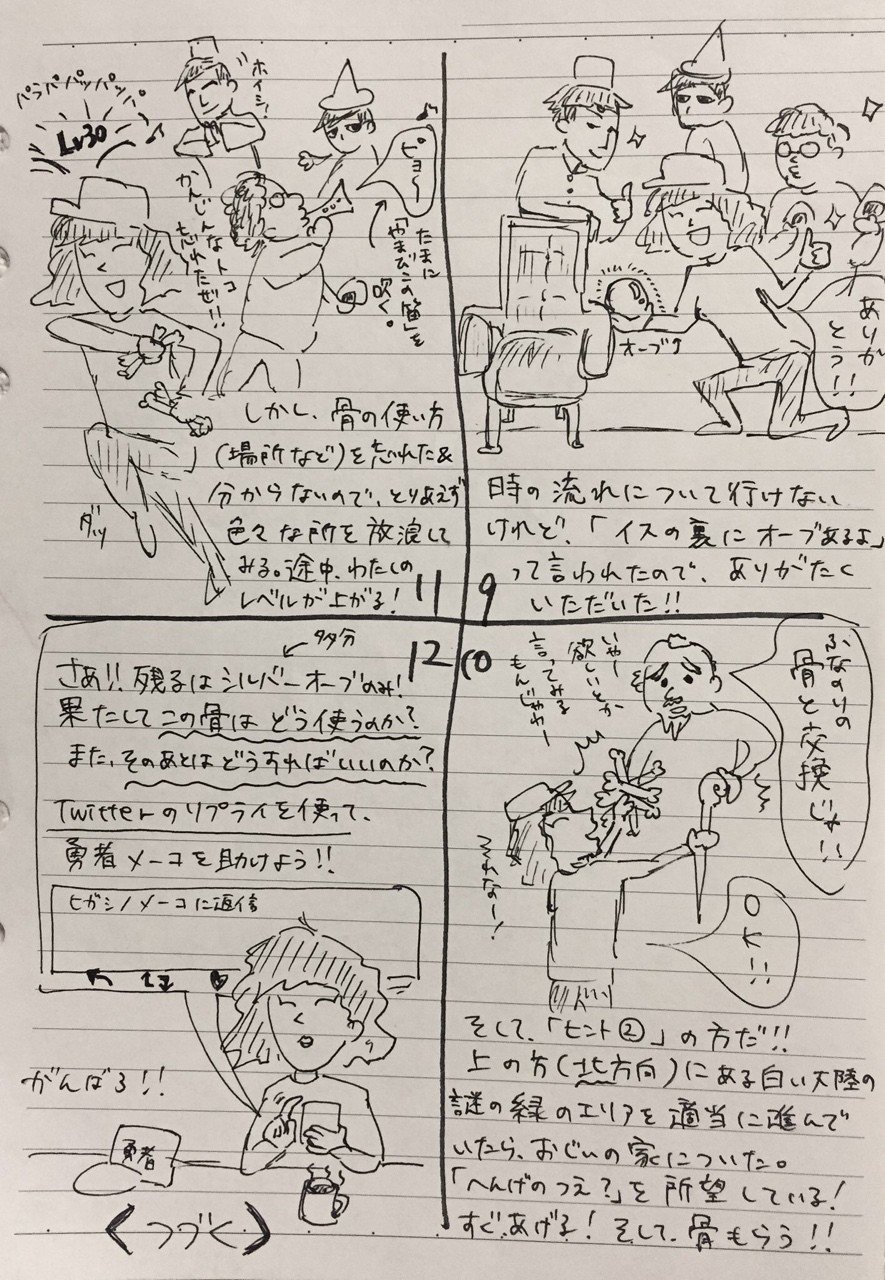 ありがとう!!
オーブ
9
時の流れについて行けない
けれど、「イスの裏にオーブあるよ」
って言われたので、ありがたく
いただいた!!
10
ふなのりの
骨と交換じゃ!!
いやー
欲しいとか
言ってみる
もんじゃわー
OK!!
そして、「ヒント②」の方だ!!
上の方(北方向)にある白い大陸の
謎の緑のエリアを適当に進んで
いたら、おじいの家についた。
「へんげのつえ?」を所望している!
すぐあげる!そして、骨もらう!!
11
パラパパッパッパ
Lv30
ホイシ!
ピョ〜
たまに
「やまびこの笛」を
吹く。
かんじんなトコ
忘れたぜ!!
ダッ
しかし、骨の使い方
(場所など)を忘れた&
分からないので、とりあえず
色々な所を放浪して
みる。途中、わたしの
レベルが上がる!
12
多分
さあ!!残るはシルバーオーブのみ!
果たしてこの骨はどう使うのか?
また、そのあとはどうすればいいのか?
Twitterのリプライを使って、
勇者メーコを助けよう!!
ヒガシノメーコに返信
がんばる!!
勇者
つづく